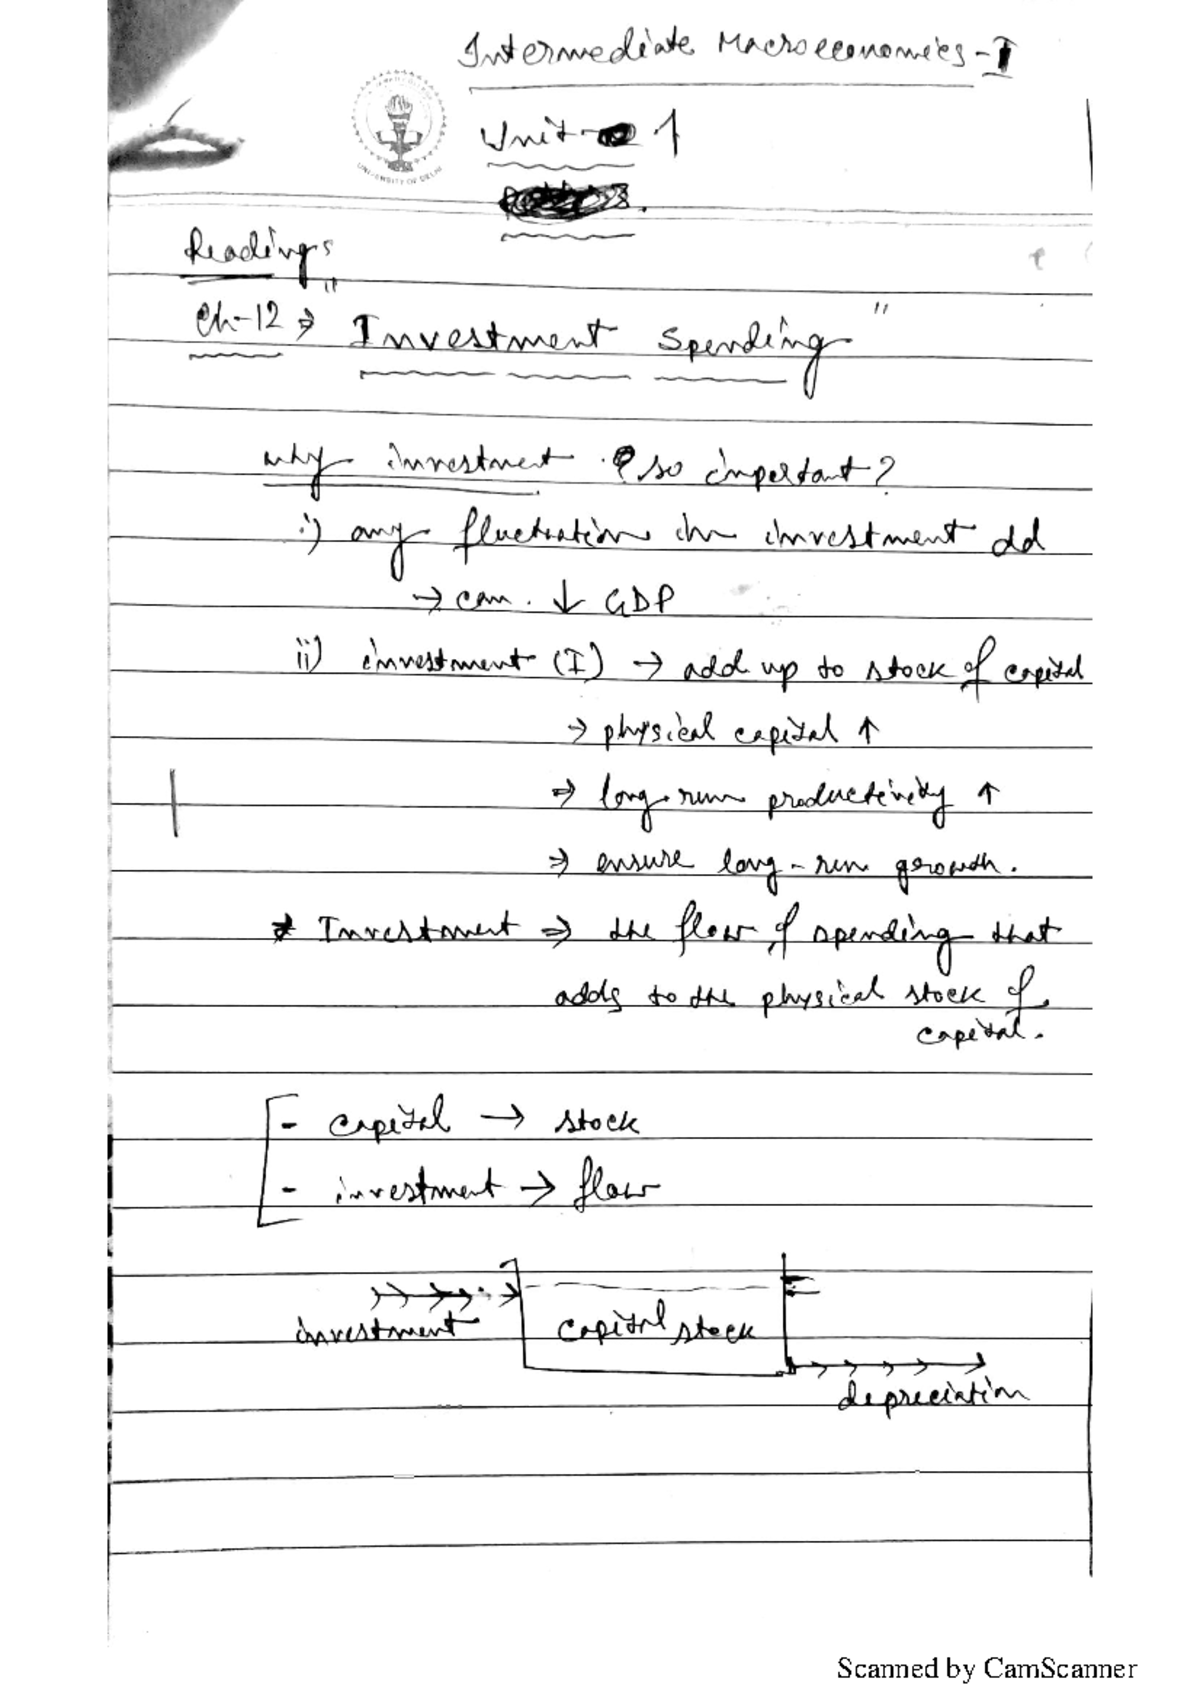 Intermediate Macroeconomics-I
Unit- 1
UNIVERSITY OF DELHI
Readings
Ch-12 ⇒ "Investment Spending"
why investment so important?
i) any fluctuation in investment dd
→ can ↓ GDP
ii) investment (I) → add up to stock of capital
→ physical capital ↑
⇒ long-run productivity ↑
⇒ ensure long-run growth.
* Investment ⇒ the flow of spending that
adds to the physical stock of
capital.
- capital → stock
- investment → flow
investment
capital stock
depreciation
Scanned by CamScanner